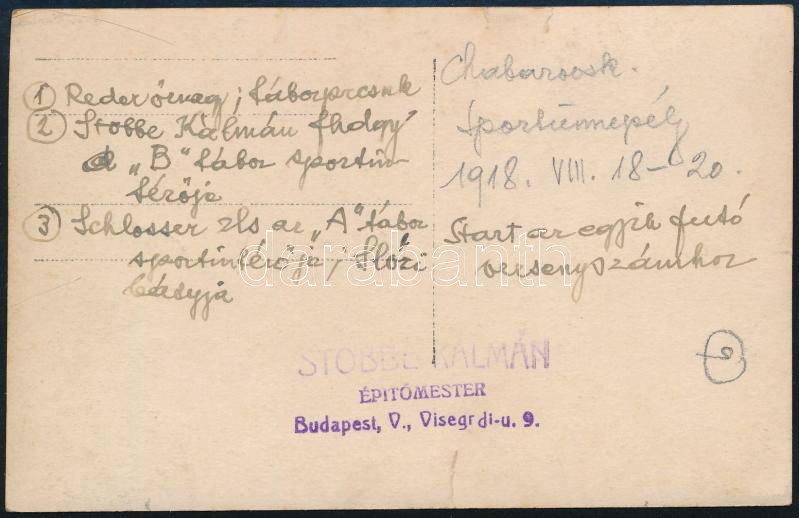 ① Reder őrnagy; táborprcsnk
② Stobbe Kálmán fhdgy
a „B" tábor sportin
térője
③ Schlosser zls az „A" tábor
sportintérője; Flóri
bátyja
Chabarovsk.
Sportünnepély
1918. VIII. 18–20.
Start az egyik futó
versenyszámhoz
darabanth
STOBBE KÁLMÁN
ÉPITŐMESTER
Budapest, V., Visegrdi-u. 9.